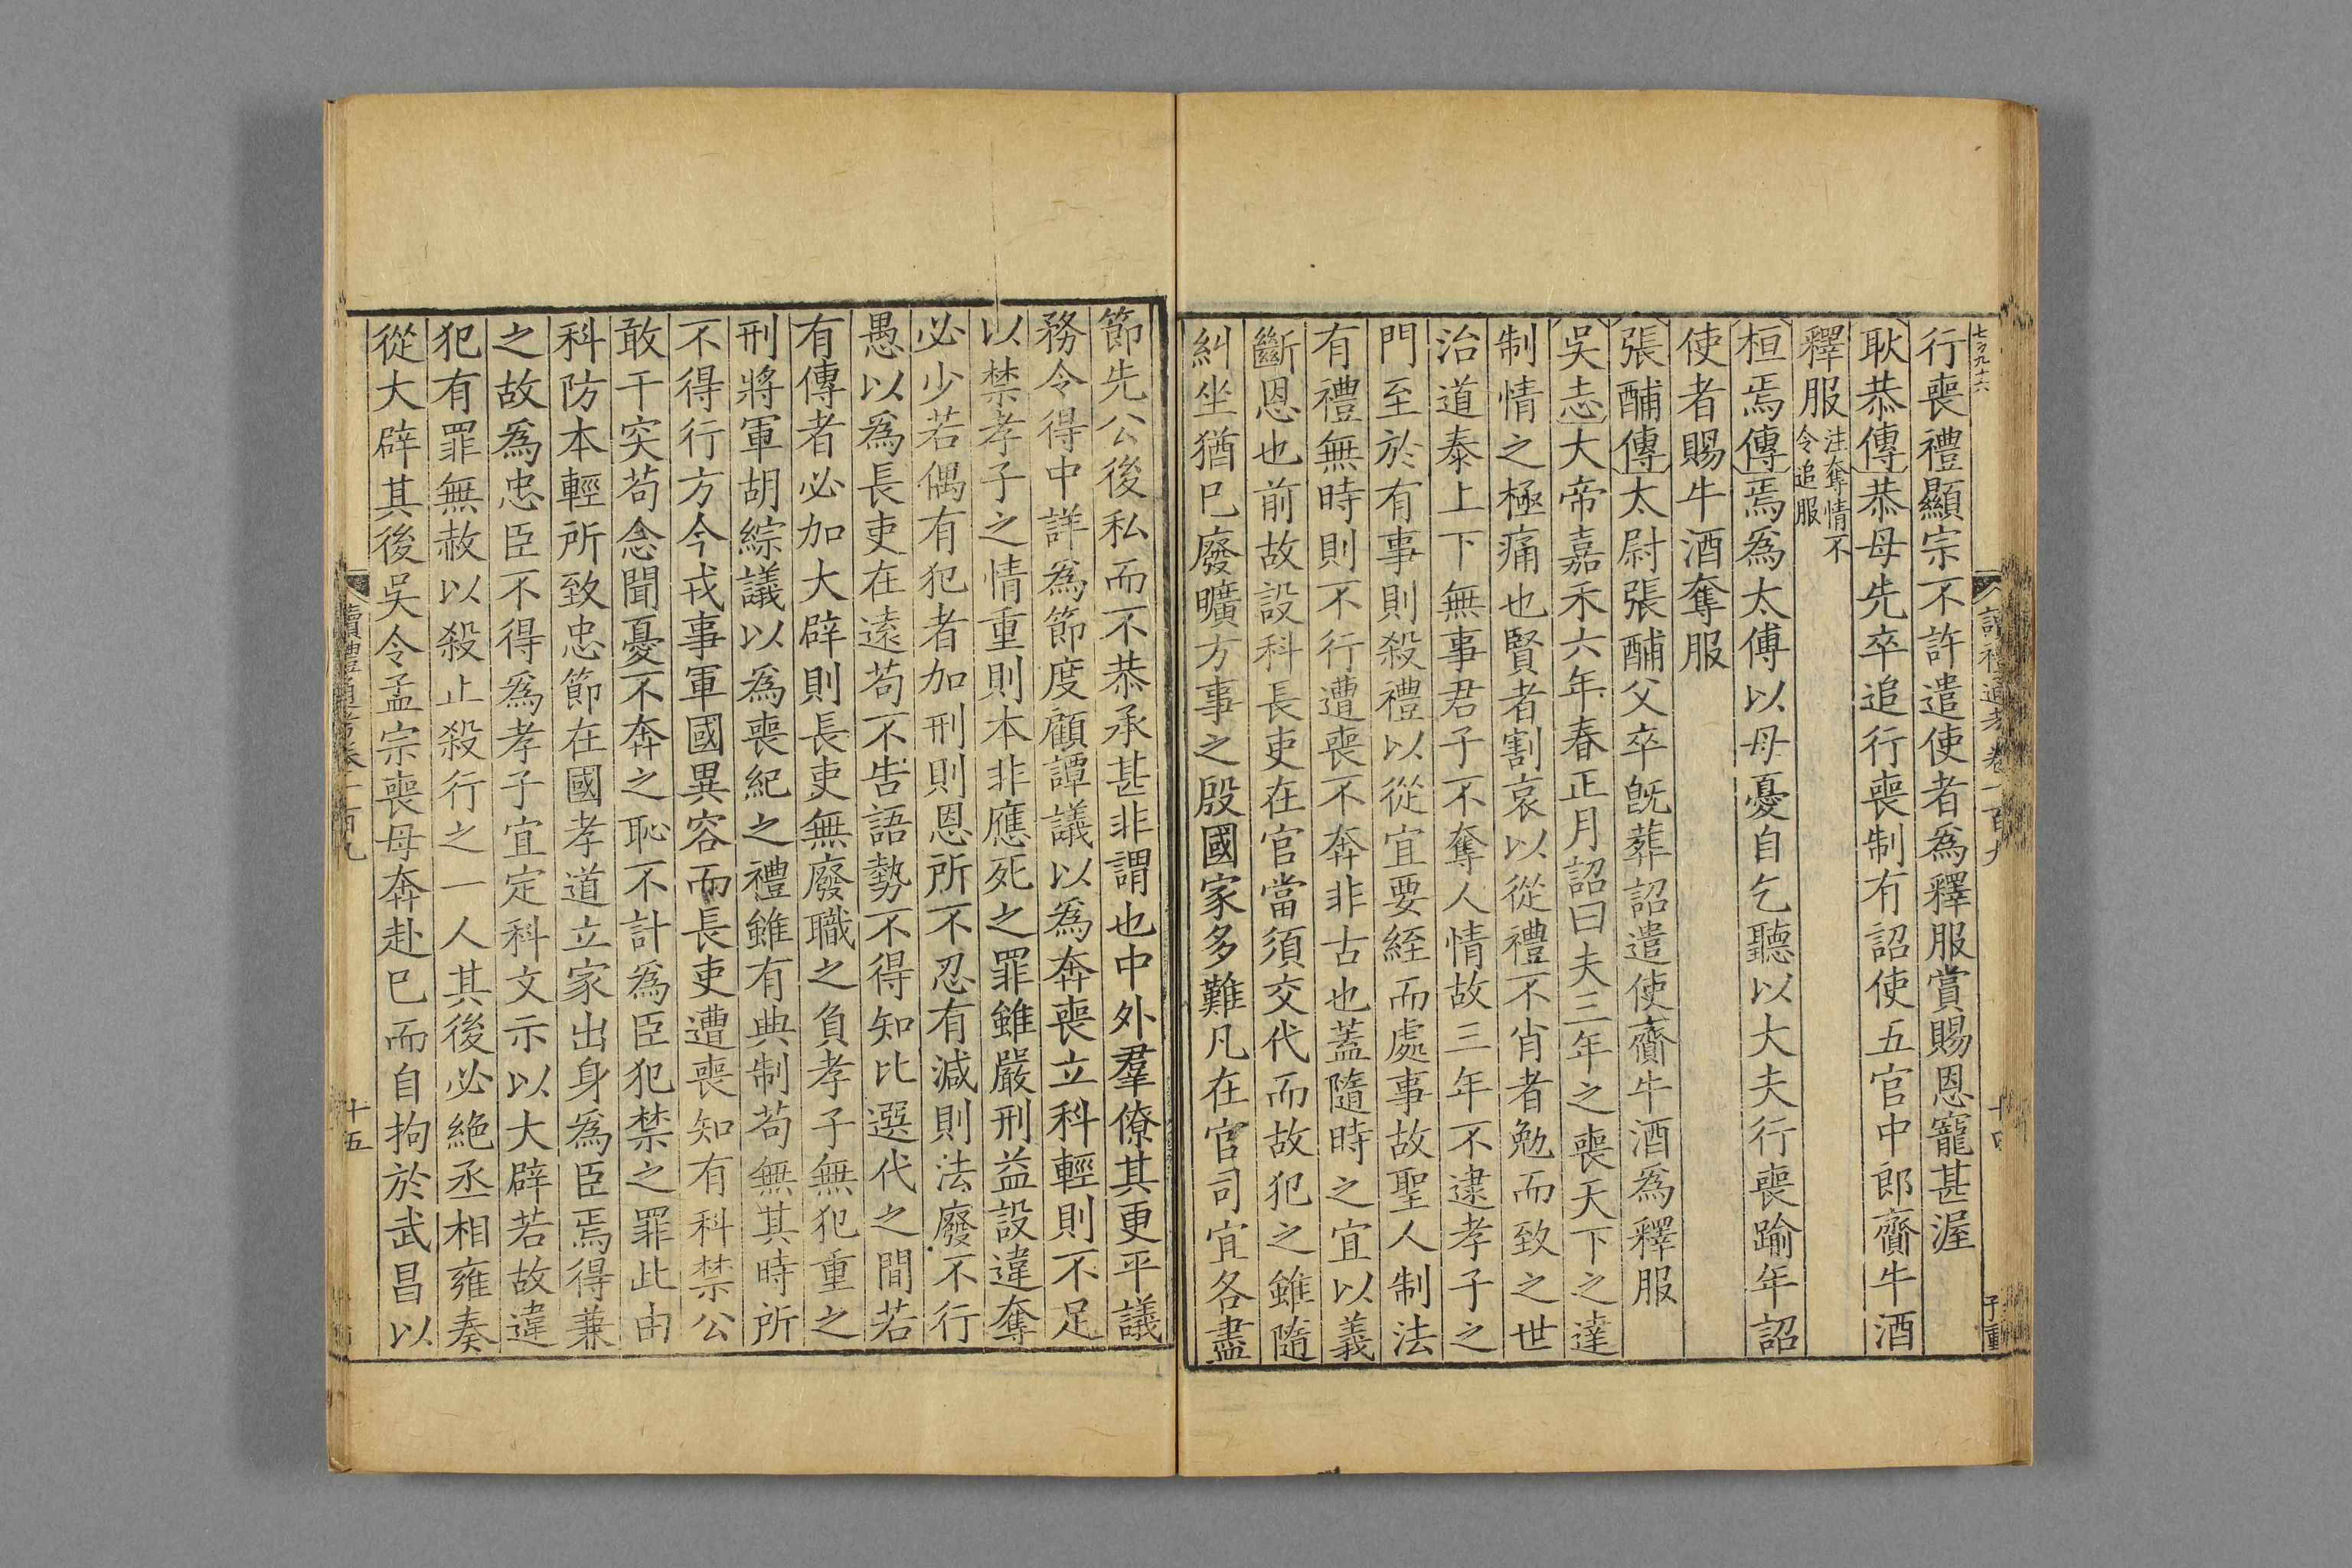 讀禮通考卷一百九
十四
行喪禮顯宗不許遣使者爲釋服賞賜恩寵甚渥
耿恭傳恭母先卒追行喪制有詔使五官中郎齎牛酒
釋服注奪情不令追服
桓焉傳焉爲太傅以母憂自乞聽以大夫行喪踰年詔
使者賜牛酒奪服
張酺傳太尉張酺父卒旣葬詔遣使齎牛酒爲釋服
吳志大帝嘉禾六年春正月詔曰夫三年之喪天下之達
制情之極痛也賢者割哀以從禮不肖者勉而致之世
治道泰上下無事君子不奪人情故三年不逮孝子之
門至於有事則殺禮以從宜要絰而處事故聖人制法
有禮無時則不行遭喪不奔非古也蓋隨時之宜以義
斷恩也前故設科長吏在官當須交代而故犯之雖隨
糾坐猶已廢曠方事之殷國家多難凡在官司宜各盡
節先公後私而不恭承甚非謂也中外羣僚其更平議
務令得中詳爲節度顧譚議以爲奔喪立科輕則不足
以禁孝子之情重則本非應死之罪雖嚴刑益設違奪
必少若偶有犯者加刑則恩所不忍有減則法廢不行
愚以爲長吏在遠苟不告語勢不得知比選代之間若
有傳者必加大辟則長吏無廢職之負孝子無犯重之
刑將軍胡綜議以爲喪紀之禮雖有典制苟無其時所
不得行方今戎事軍國異容而長吏遭喪知有科禁公
敢干突苟念聞憂不奔之恥不計爲臣犯禁之罪此由
科防本輕所致忠節在國孝道立家出身爲臣焉得兼
之故爲忠臣不得爲孝子宜定科文示以大辟若故違
犯有罪無赦以殺止殺行之一人其後必絶丞相雍奏
從大辟其後吳令孟宗喪母奔赴已而自拘於武昌以
讀禮通考卷一百九
十五